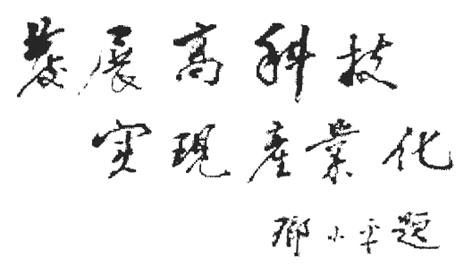 發展高科技
实現產業化
鄧小平題